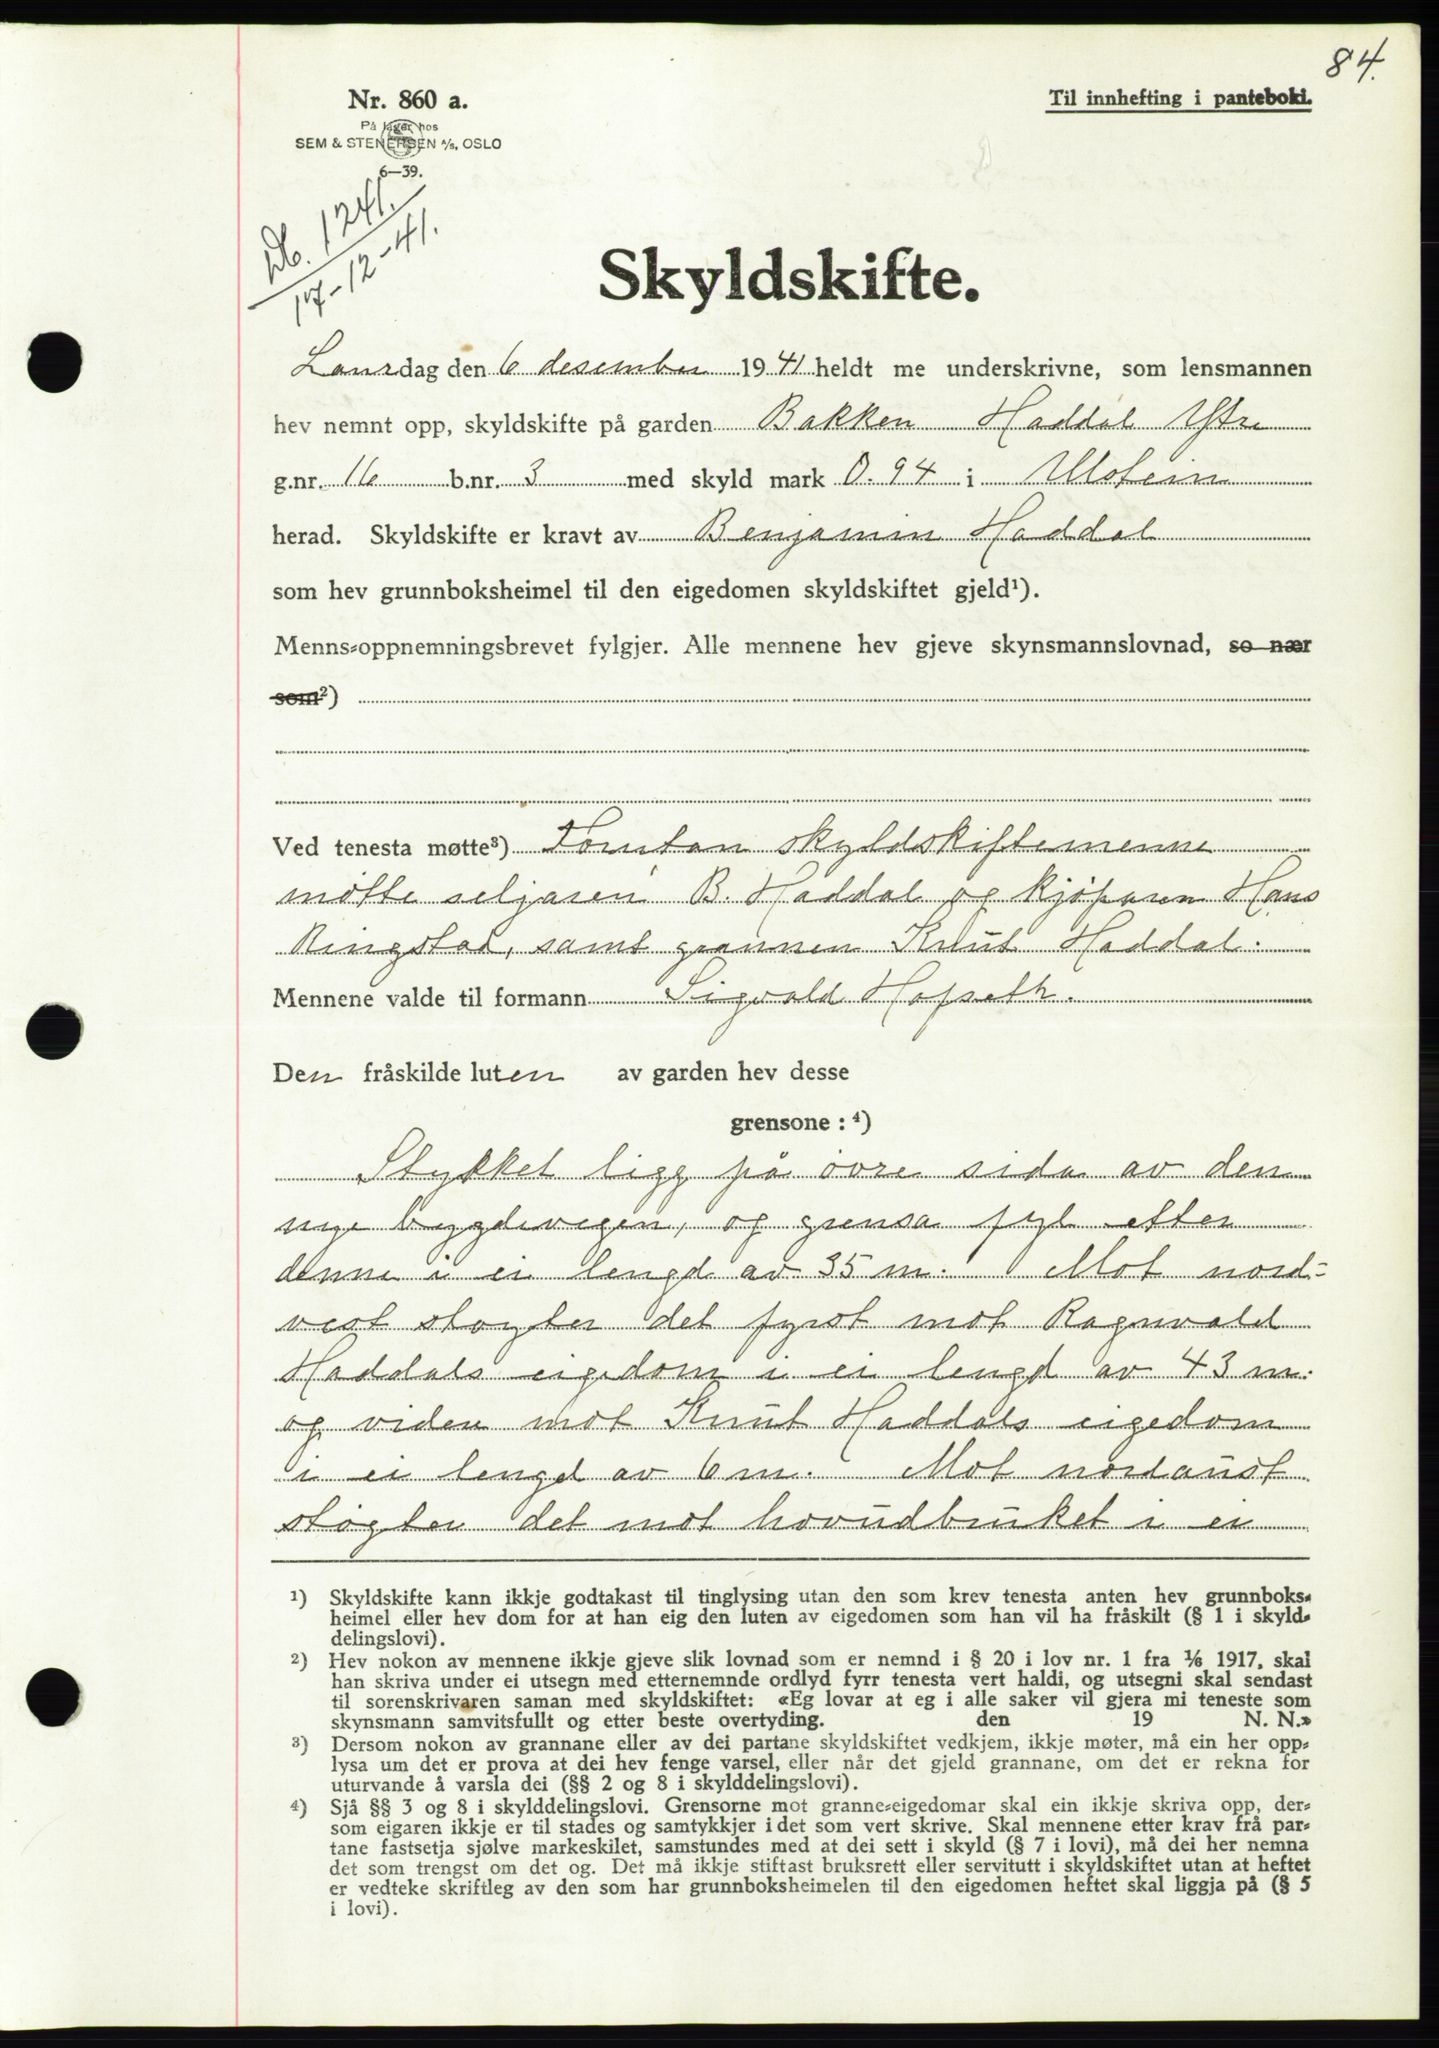 84.
Nr. 860 a.
Til innhefting i panteboki.
På lager hos
SEM & STENERSEN A/S, OSLO
6—39.
Db. 1241.
17-12-41.
Skyldskifte.
Laurdag den 6 desember 1941 heldt me underskrivne, som lensmannen
hev nemnt opp, skyldskifte på garden Bakken Haddal Ytre
g.nr. 16 b.nr. 3 med skyld mark 0.94 i Ulstein
herad. Skyldskifte er kravt av Benjamin Haddal
som hev grunnboksheimel til den eigedomen skyldskiftet gjeld¹).
Menns-oppnemningsbrevet fylgjer. Alle mennene hev gjeve skynsmannslovnad, so nær
som²)
Ved tenesta møtte³) Forutan skyldskiftemenne
møtte seljaren B. Haddal og kjøparen Hans
Ringstad, samt grannen Knut Haddal.
Mennene valde til formann Sigvald Hafseth.
Den fråskilde luten av garden hev desse
grensone : ⁴)
Stykket ligg på øvre sida av den
nye bygdevegen, og grensa fyl etter
denne i ei lengd av 35 m. Mot nord-
vest støyter det fyrst mot Ragnvald
Haddals eigedom i ei lengd av 43 m.
og vidare mot Knut Haddals eigedom
i ei lengd av 6 m. Mot nordaust
støyter det mot hovudbruket i ei
¹) Skyldskifte kann ikkje godtakast til tinglysing utan den som krev tenesta anten hev grunnboks-
heimel eller hev dom for at han eig den luten av eigedomen som han vil ha fråskilt (§ 1 i skyld-
delingslovi).
²) Hev nokon av mennene ikkje gjeve slik lovnad som er nemnd i § 20 i lov nr. 1 fra 1/6 1917, skal
han skriva under ei utsegn med etternemnde ordlyd fyrr tenesta vert haldi, og utsegni skal sendast
til sorenskrivaren saman med skyldskiftet: «Eg lovar at eg i alle saker vil gjera mi teneste som
skynsmann samvitsfullt og etter beste overtyding. den 19 N. N.»
³) Dersom nokon av grannane eller av dei partane skyldskiftet vedkjem, ikkje møter, må ein her opp-
lysa um det er prova at dei hev fenge varsel, eller når det gjeld grannane, om det er rekna for
uturvande å varsla dei (§§ 2 og 8 i skylddelingslovi).
⁴) Sjå §§ 3 og 8 i skylddelingslovi. Grensorne mot granne-eigedomar skal ein ikkje skriva opp, der-
som eigaren ikkje er til stades og samtykkjer i det som vert skrive. Skal mennene etter krav frå par-
tane fastsetja sjølve markeskilet, samstundes med at dei sett i skyld (§ 7 i lovi), må dei her nemna
det som trengst om det og. Det må ikkje stiftast bruksrett eller servitutt i skyldskiftet utan at heftet
er vedteke skriftleg av den som har grunnboksheimelen til den eigedomen heftet skal liggja på (§ 5
i lovi).